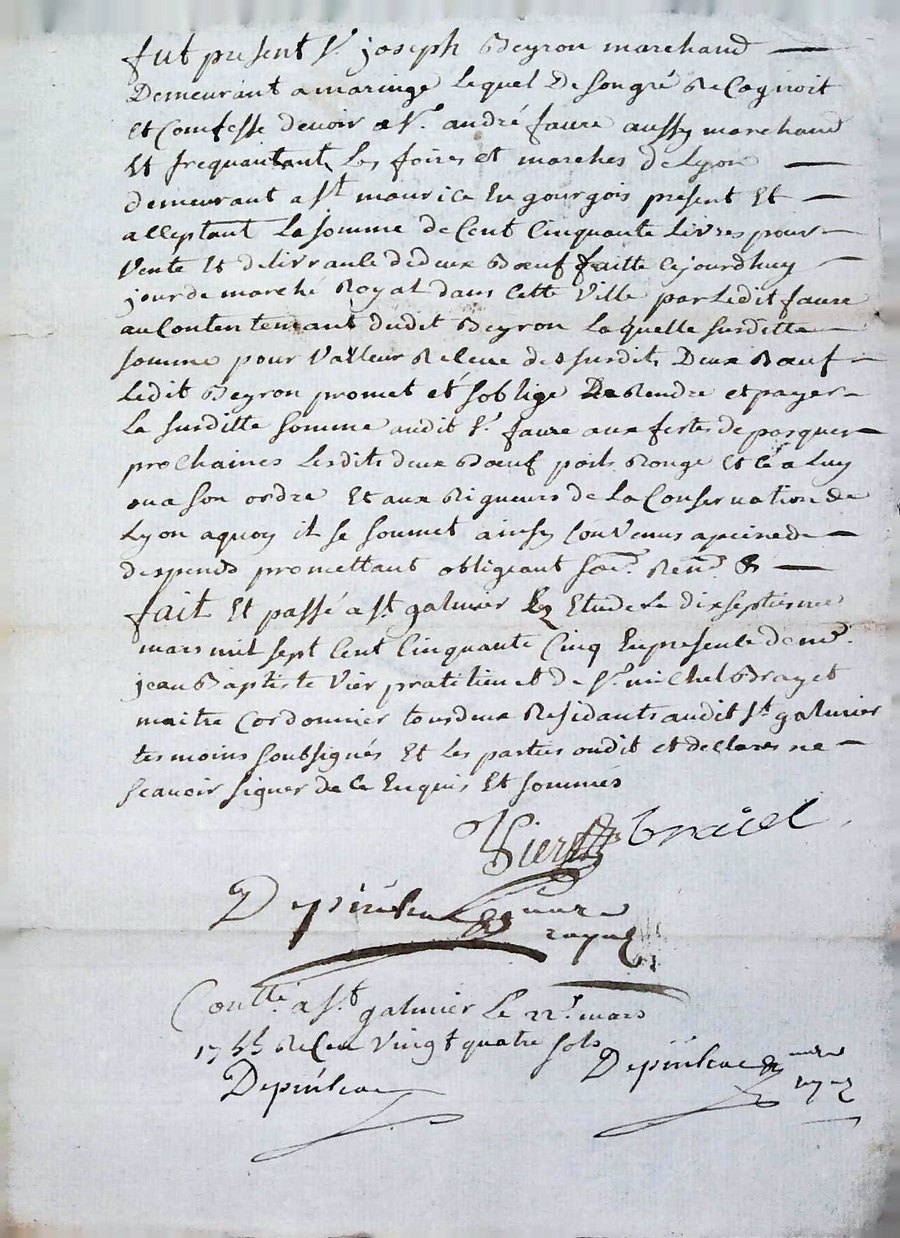 fut present Sr joseph Beyron marchand
Demeurant a maringe Lequel De son gré Recognoit
et Comfesse devoir a Sr. andré faure aussy marchand
Et frequantant Les foires et marches de Lyon
demeurant a St maurice En gourgois present Et
acceptant La somme de Cent Cinquante Livres pour
Vente Et delivrance de deux Bœuf faitte cejourdhuy
jour de marché Royal dans Cette Ville par Ledit faure
au Contentemant dudit Beyron Laquelle surditte
somme pour Valleur Releue des surdits Deux Bœuf
Ledit Beyron promet et soblige De Rendre et payer
La surditte somme audit Sr. faure aux festes de pasques
prochaines Lesdits deux Bœuf poils Rouge Et Ce a Luy
ou a son ordre Et aux Rigueurs de La Conservation de
Lyon aquoy il se soumet ainsy Convenus a peine de
despends promettant obligeant Renon. &
fait Et passé a St. galmier Etude Le dix septieme
mars mil sept Cent Cinquante Cinq En presence de me.
jean Baptiste Vier pratitien et de Sr. michel Brayet
maitre Cordonnier tous deux Residants audit St. galmier
tesmoins soubsignés Et Les parties ondit et declares ne
scavoir signer de Ce Enquis Et sommés
Vier
Depinhac
royal
Contlé. a St. galmier Le 22e. mars
1755 Receu Vingt quatre sols
Depinhac Depinhac